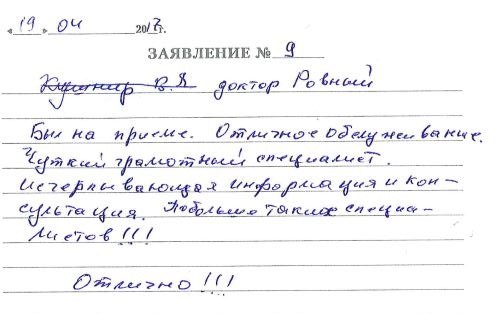 « 19 » 04 2017г.
ЗАЯВЛЕНИЕ № 9
Кушнир В.Я доктор Ровный
Был на приеме. Отличное обслуживание.
Чуткий грамотный специалист.
Исчерпывающая информация и кон-
сультация. Побольше таких специа-
листов!!!
Отлично!!!